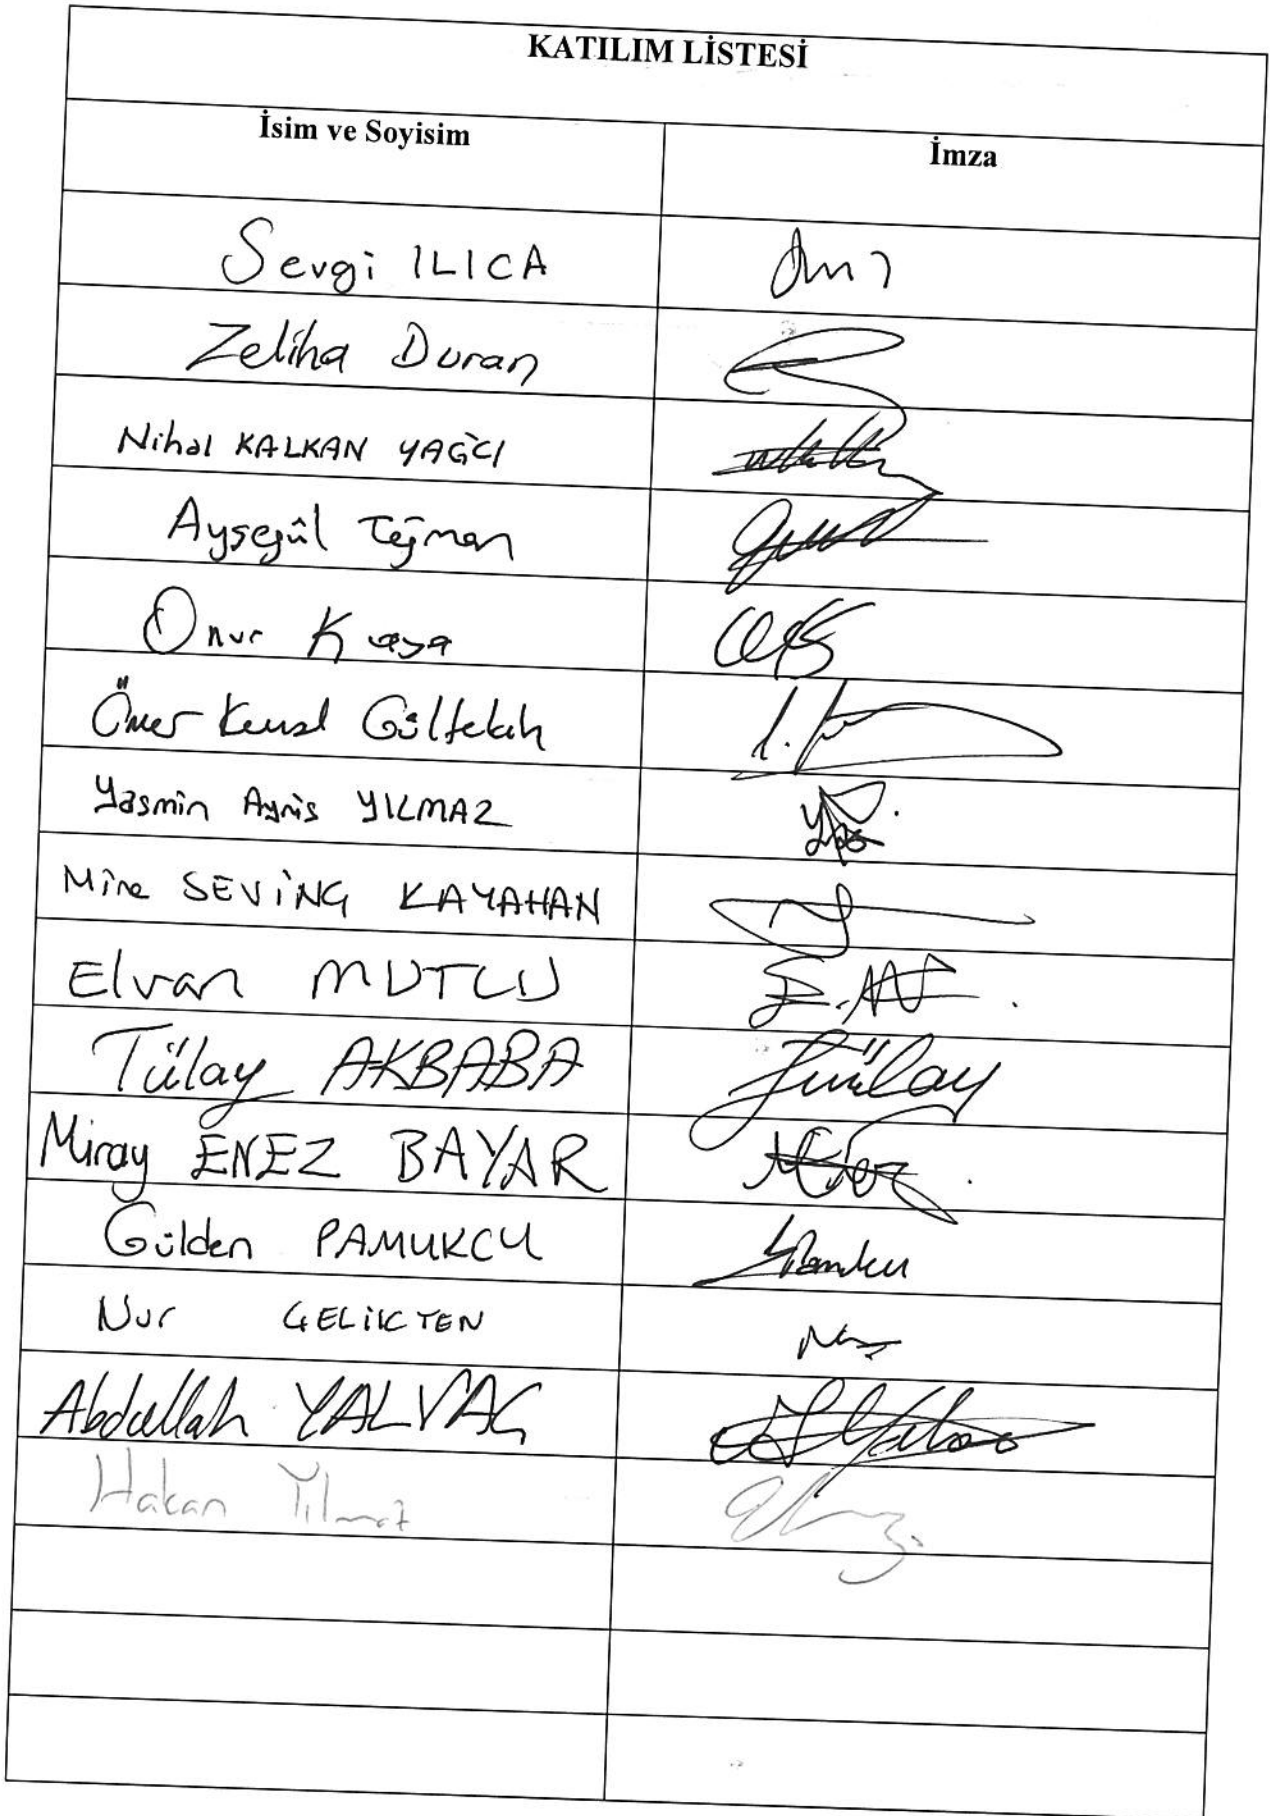 KATILIM LİSTESİ
İsim ve Soyisim İmza
Sevgi ILICA
Zeliha Duran
Nihal KALKAN YAĞCI
Ayşegül Teğmen
Onur Kaya
Ömer Kemal Gültekin
Yasmin Ayris YILMAZ
Mine SEVİNÇ KAYAHAN
Elvan MUTLU E.M
Tülay AKBABA Tülay
Miray ENEZ BAYAR
Gülden PAMUKCU
Nur ÇELİKTEN
Abdullah YALVAÇ
Hakan Yılmaz